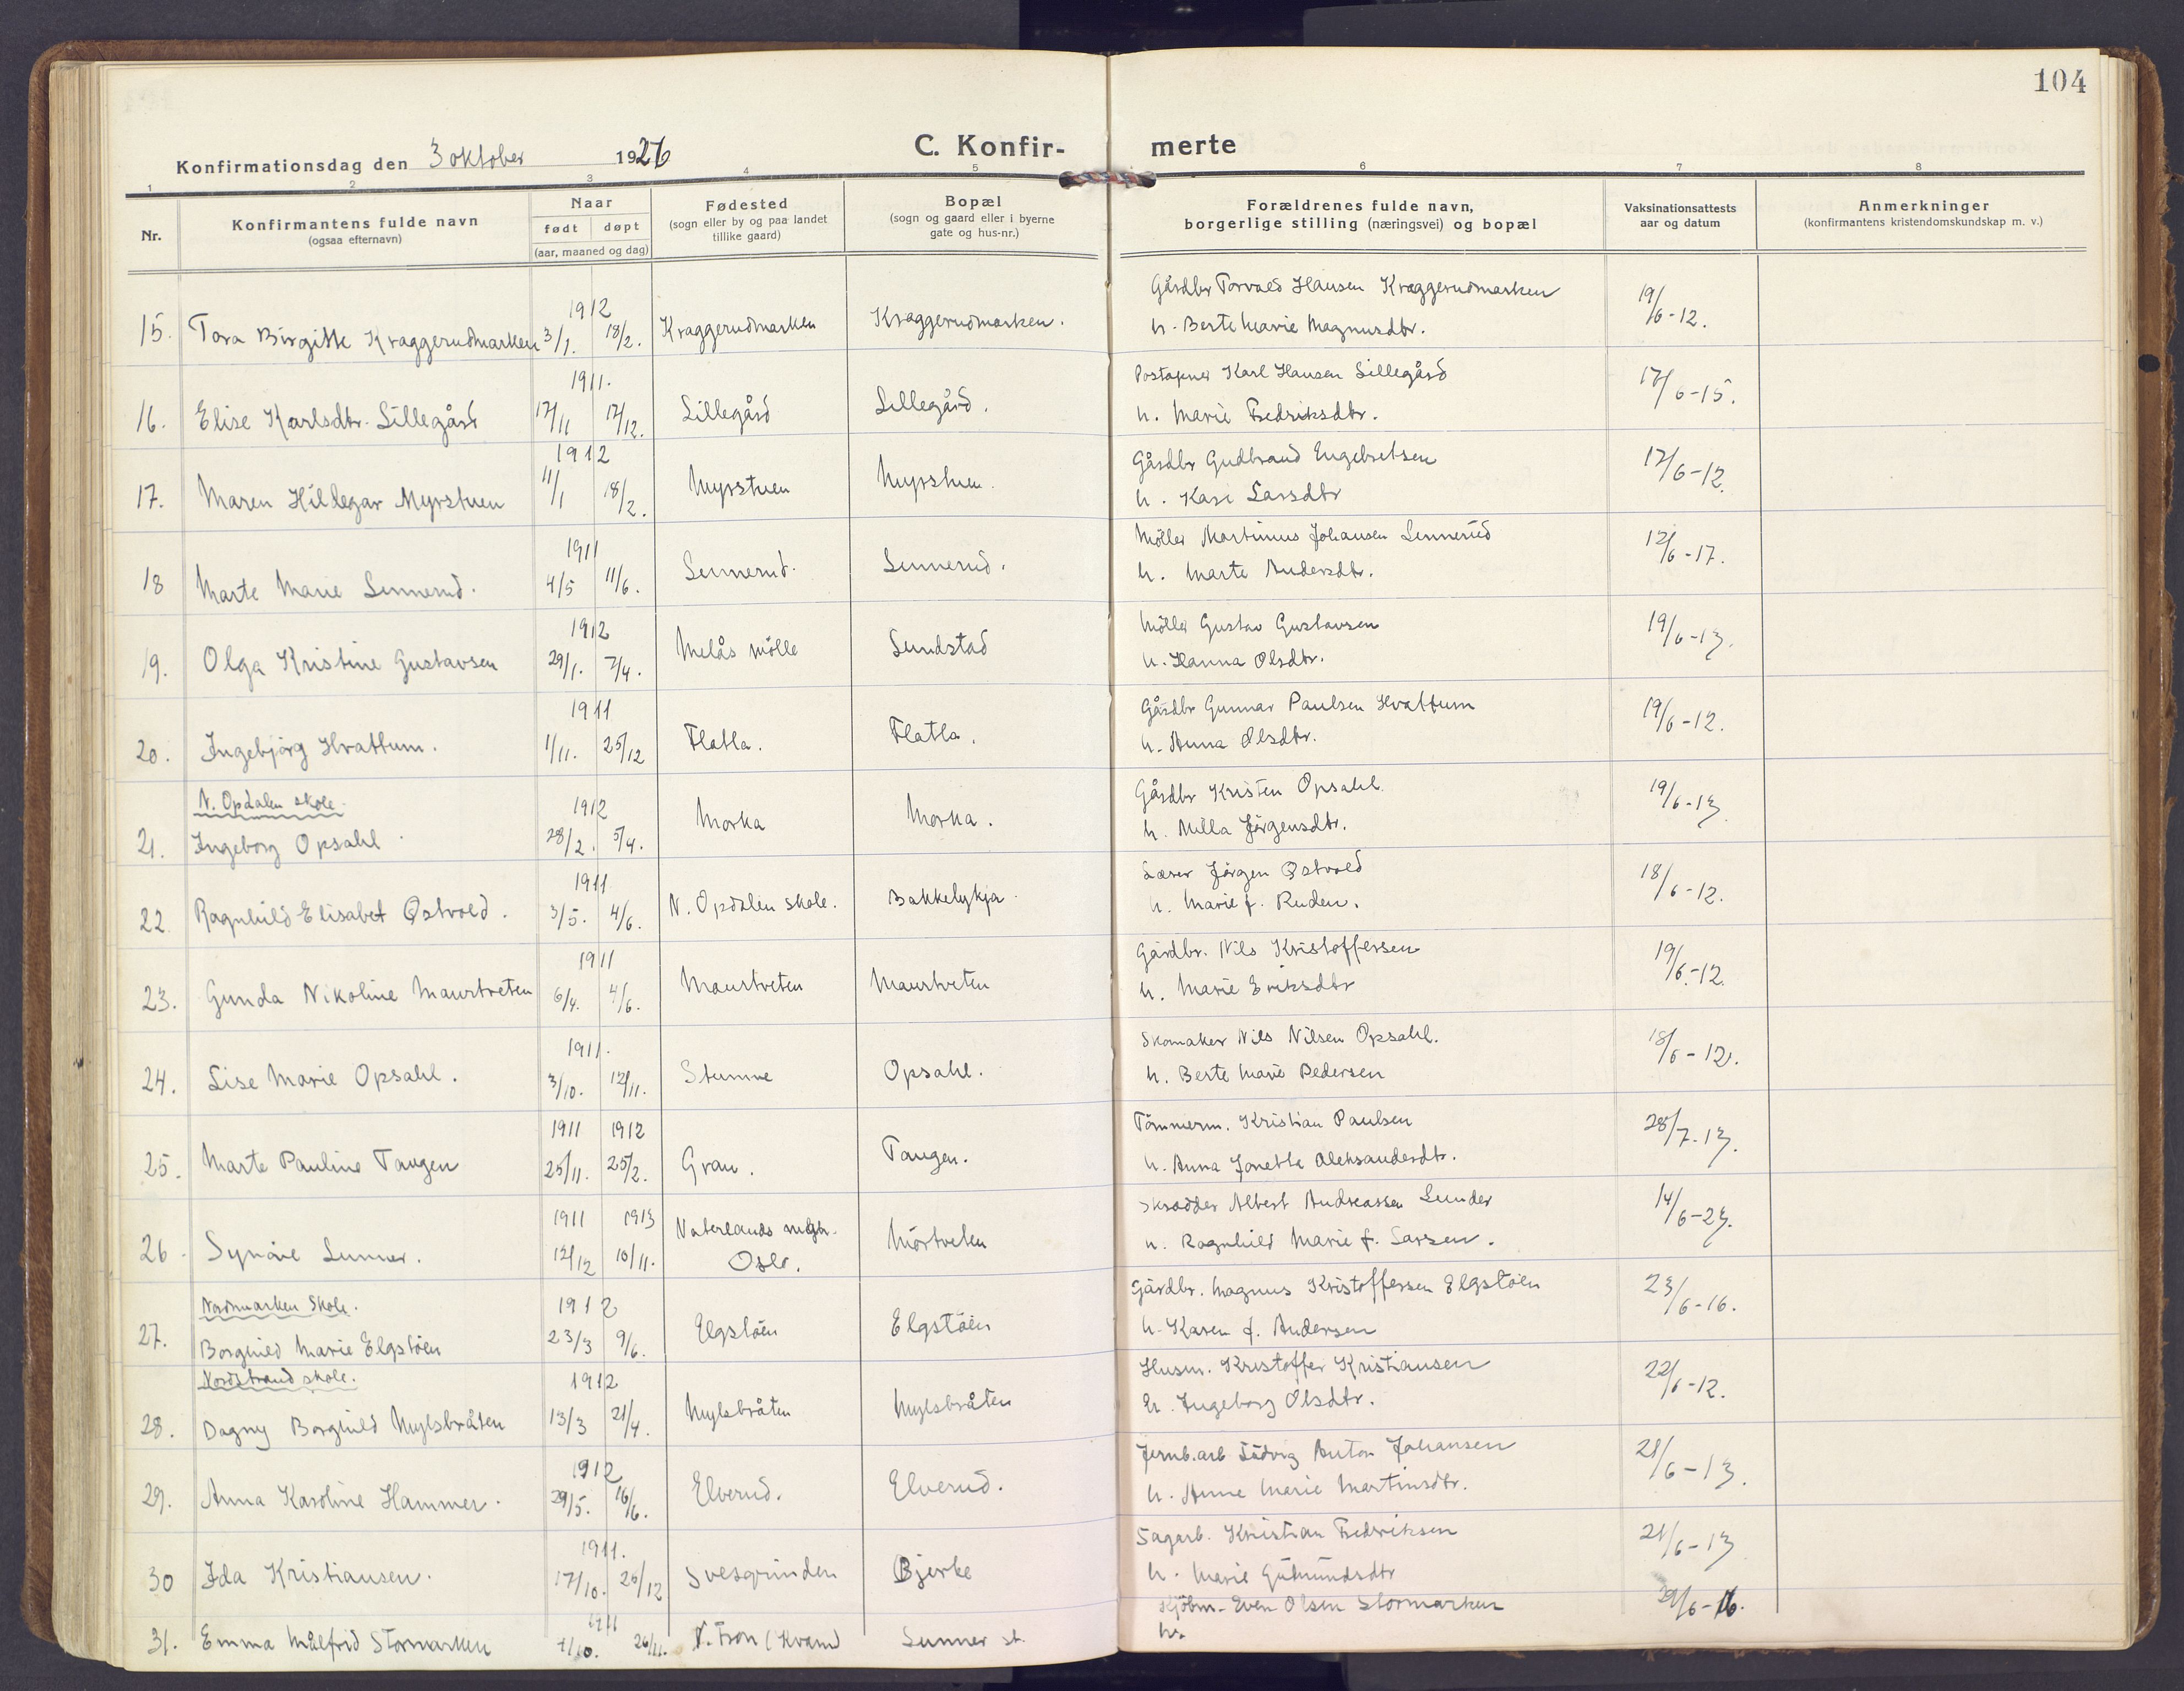 104
Konfirmationsdag den 3 oktober 1926
C. Konfir- merte
1 2 3 4 5 6 7 8
Nr.
Konfirmantens fulde navn
(ogsaa efternavn)
Naar
født døpt
(aar, maaned og dag)
Fødested
(sogn eller by og paa landet
tillike gaard)
Bopæl
(sogn og gaard eller i byerne
gate og hus-nr.)
Forældrenes fulde navn,
borgerlige stilling (næringsvei) og bopæl
Vaksinationsattests
aar og datum
Anmerkninger
(konfirmantens kristendomskundskap m. v.)
1912 Gårdbr Torvald Hansen Kraggerudmarken
15. Tora Birgitte Kraggerudmarken 3/1. 18/2. Kraggerudmarken Kraggerudmarken. 19/6-12.
h. Berte Marie Magnusdtr.
1911. Poståpner Karl Hansen Lillegård
16. Elise Karlsdtr. Lillegård 17/11 17/12. Lillegård Lillegård. 17/6-15.
h. Marie Fredriksdtr.
1912 Gårdbr Gudbrand Engebretsen
17. Maren Hildegar Myrstuen 11/1 18/2. Myrstuen Myrstuen. 17/6-12.
h. Kari Larsdtr
1911 Möller Martinus Johansen Lunnerud
18 Marte Marie Lunnerud. 4/5 11/6. Lunnerud. Lunnerud. 12/6-17.
h. Marte Andersdtr.
1912 Möller Gustav Gustavsen
19. Olga Kristine Gustavsen 29/1. 7/4. Melås mölle Sundstad 19/6-13.
h. Hanna Olsdtr.
1911 Gårdbr Gunnar Paulsen Hvattum
20. Ingebjörg Hvattum. 1/11. 25/12 Flatla. Flatla. 19/6-12.
h. Anna Olsdtr.
N. Opdalen skole.
1912 Gårdbr Kristen Opsahl.
21. Ingeborg Opsahl 28/2. 5/4. Morka Morka. 19/6-13
h. Milla Jörgensdtr.
1911 Lærer Jörgen Østvold
22. Ragnhild Elisabet Østvold. 3/5. 4/6. N. Opdalen skole. Bakkelykja 18/6-12.
h. Marie f. Ruden.
1911 Gårdbr. Nils Kristoffersen
23. Gunda Nikoline Maurtveten 6/4. 4/6. Maurtveten Maurtveten 19/6-12.
h. Marie Eriksdtr
1911. Skomaker Nils Nilsen Opsahl.
24. Lise Marie Opsahl. 3/10. 12/11. Stumne Opsahl. 18/6-12.
h. Berte Marie Pedersen
1911 1912 Tömmerm. Kristian Paulsen
25. Marte Pauline Tangen 25/11. 25/2. Gran. Tangen. 28/7-13.
h. Anna Jonetta Aleksandersdtr.
1911 1913 Skrædder Albert Andreassen Lunder
26. Synöve Lunner. 12/12 10/11. Vaterlands mgh. Oslo. Mörtveten 14/6-23.
h. Ragnhild Marie f. Larsen.
Nordmarken Skole.
1912 Gårdbr. Magnus Kristoffersen Elgstöen
27. Borghild Marie Elgstöen 23/3 9/6. Elgstöen Elgstöen 23/6-16.
h. Karen f. Andersen
Nordstrand skole.
1912 Husm. Kristoffer Kristiansen
28. Dagny Borghild Mylsbråten 13/3 21/4. Mylsbråten Mylsbråten 22/6-12.
h. Ingeborg Olsdtr.
1912 Jernb.arb Ludvig Anton Johansen
29. Anna Karoline Hammer. 29/5. 16/6. Elverud. Elverud. 21/6-13.
h. Anne Marie Martinsdtr.
1911. Sagarb. Kristian Fredriksen
30 Ida Kristiansen. 17/10. 26/12 Svesgrinden Bjerke 21/6-13
h. Marie Gulmundsdtr
1911 Kjöbm. Even Olsen Stormarken
31. Emma Målfrid Stormarken 1/10. 26/11. N. Fron (Kvam) Lunner st. 29/6-16.
h.